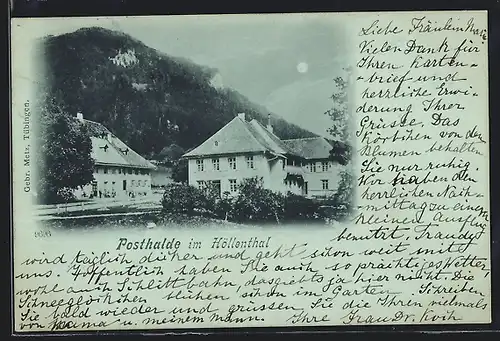 Liebe Fräulein Mai
Vielen Dank für
Ihren Karten-
brief und
herzliche Erwi
derung Ihrer
Grüsse. Das
Körbchen von den
Blumen behalten
Sie nur ruhig
Wir haben den
herrlichen Nach-
mittag zu einem
kleinen Ausflug
benutzt, Traudy
Gebr. Metz, Tübingen.
Posthalde im Höllenthal
wird täglich dicker und geht schon weit mit
uns. Hoffentlich haben Sie auch so prächtiges Wetter
wohl auch Schlittbahn, das giebts ja hier nicht. Die
Schneeglöckchen blühen schon im Garten. Schreiben
Sie bald wieder und grüssen Sie die Ihren vielmals
von Mama u. meinem Mann. Ihre Frau Dr. Koch